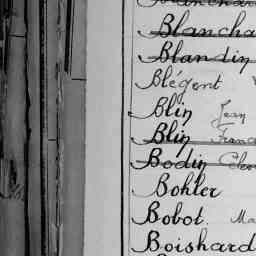 Blancha
Blandin
Blégent
Blin Jean
Blin Franc
Bodin
Bohler
Bobot. Ma
Boishard